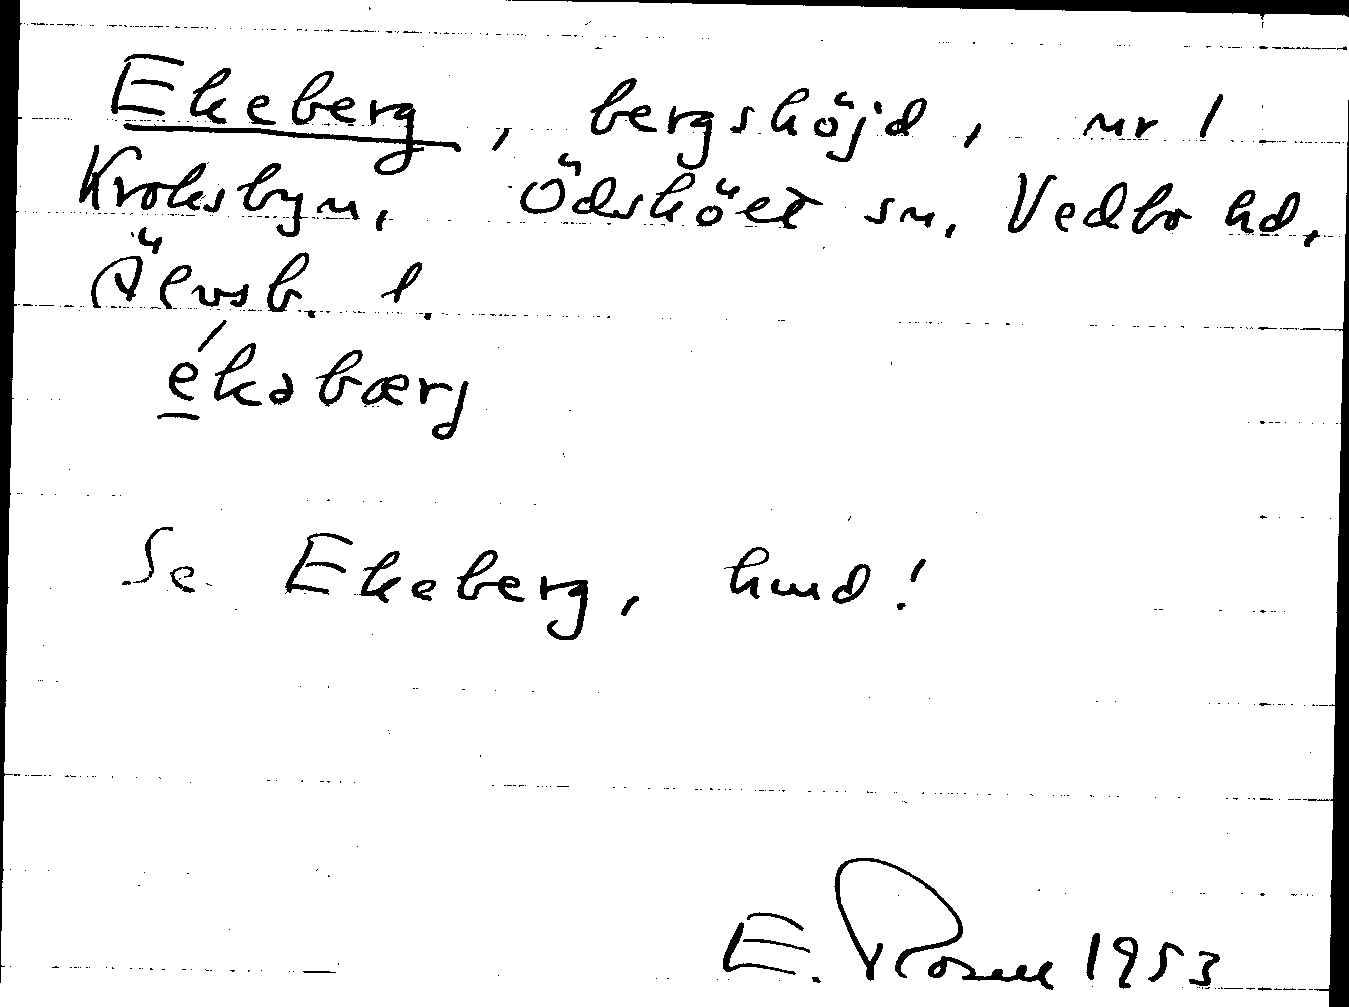 Ekeberg, bergshöjd, nr 1
Kroksbyn, Ödsköet sn, Vedbo hd,
Älvsb. l.
ékəbærj
Se Ekeberg, hmd!
E. Rosell 1953